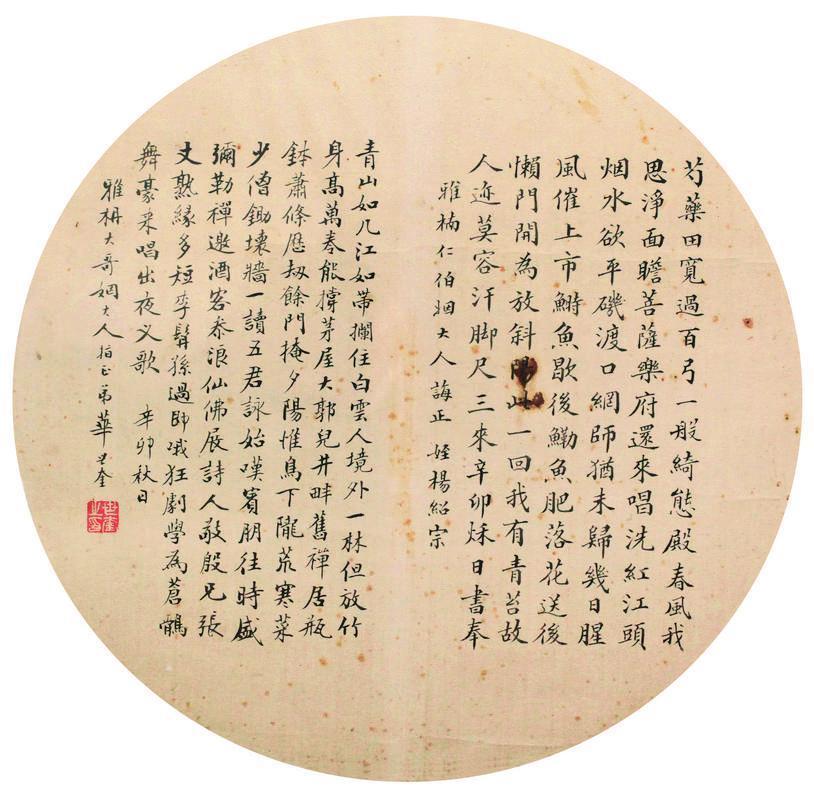 芍藥田寬過百弓一般綺態殿春風我
思淨面瞻菩薩樂府還來唱洗紅江頭
烟水欲平磯渡口網師猶未歸幾日腥
風催上市鰣魚歇後鰳魚肥落花送後
懶門開為放斜陽此一回我有青苔故
人迹莫容汗脚尺三來辛卯秌日書奉
雅楠仁伯姻大人誨正 姪楊紹宗
青山如几江如帶攔住白雲人境外一林但放竹
身高萬卷能撐茅屋大郭兒井畔舊禪居瓶
鉢蕭條歷劫餘門掩夕陽惟鳥下隴荒寒菜
少僧鋤壞牆一讀五君詠始嘆賓朋往時盛
彌勒禪邀酒客參浪仙佛展詩人敬殷兄張
丈熟緣多短李髯孫過即哦狂劇學為蒼鶻
舞豪來唱出夜叉歌 辛卯秋日
雅枬大哥姻大人指正 弟華世奎